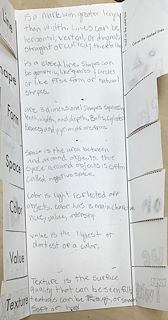 Line
is a mark with greater length
than width. Lines can be
horizontal, vertical, or diagonal,
straight or curved, thick or
Shape
is a closed line. Shapes can
be geometric, like squares / circles
or like free form or natural
shapes.
Form
are 3 dimensional shapes expressing
length, width, and depth. Balls, cylinders
boxes and pyramids are forms
Space
Space is the area between
and around objects. The
space around objects is often
called negative space.
Color
Color is light reflected off
objects. color has 3 main characteristics
hue, value, intensity
Value
value is the lightest or
darkest of a color.
Texture
Texture is the surface
quality that can be seen/felt
textures can be rough, or smooth
soft or hard